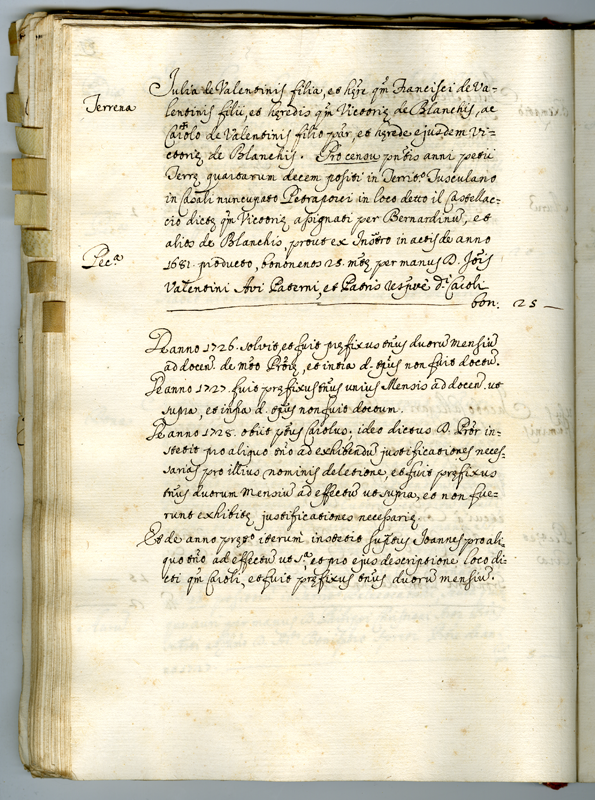 Julia de Valentinis filia, et hęre qm̃ Francisci de Va-
Terrena
lentinis filii, et hęredis qm̃ Victorię de Blanchis, ac
Carolo de Valentinis filio par, et hęrede ejusdem Vi-
ctorię de Blanchis. Pro censu pn̄tis anni petii
Terrę quartarum decem positi in Territ.º Tusculano
in Casali nuncupato Petraporci in loco detto il Castellac-
cio dictę qm̃ Victorię assignati per Bernardinũ, et
alios de Blanchis, prout ex Instro in actis de anno
Pec.ª
1681. producto, bononenos 25. mtę per manus D. Jõis
Valentini Avi Paterni, et Patris respvè d.i Caroli
bon: 25 —
De anno 1726. solvit, et fuit pręfixus tñus duorũ mensiũ
ad docen. de mto Prõrę, et infra d. tñus non fuit doctũ.
De anno 1727. fuit pręfixus tñus unius Mensis ad docen. ut
supra, et infra d. tñus non fuit doctum.
De anno 1728. obiit ptus Carolus; ideo dictus D. Prõr in-
stetit pro aliquo tño ad exhibendũ justificationes neces-
sarias pro illius nominis deletione, et fuit pręfixus
tñus duorum Mensiũ ad effectũ ut supra, et non fue-
runt exhibitę justificationes necessarię
Et de anno pręto iterum institit Joannes pro ali-
quo tño ad effectũ ut s.ª, et pro ejus descriptione loco di-
cti qm̃ Caroli, et fuit pręfixus tñus duorũ mensiũ.